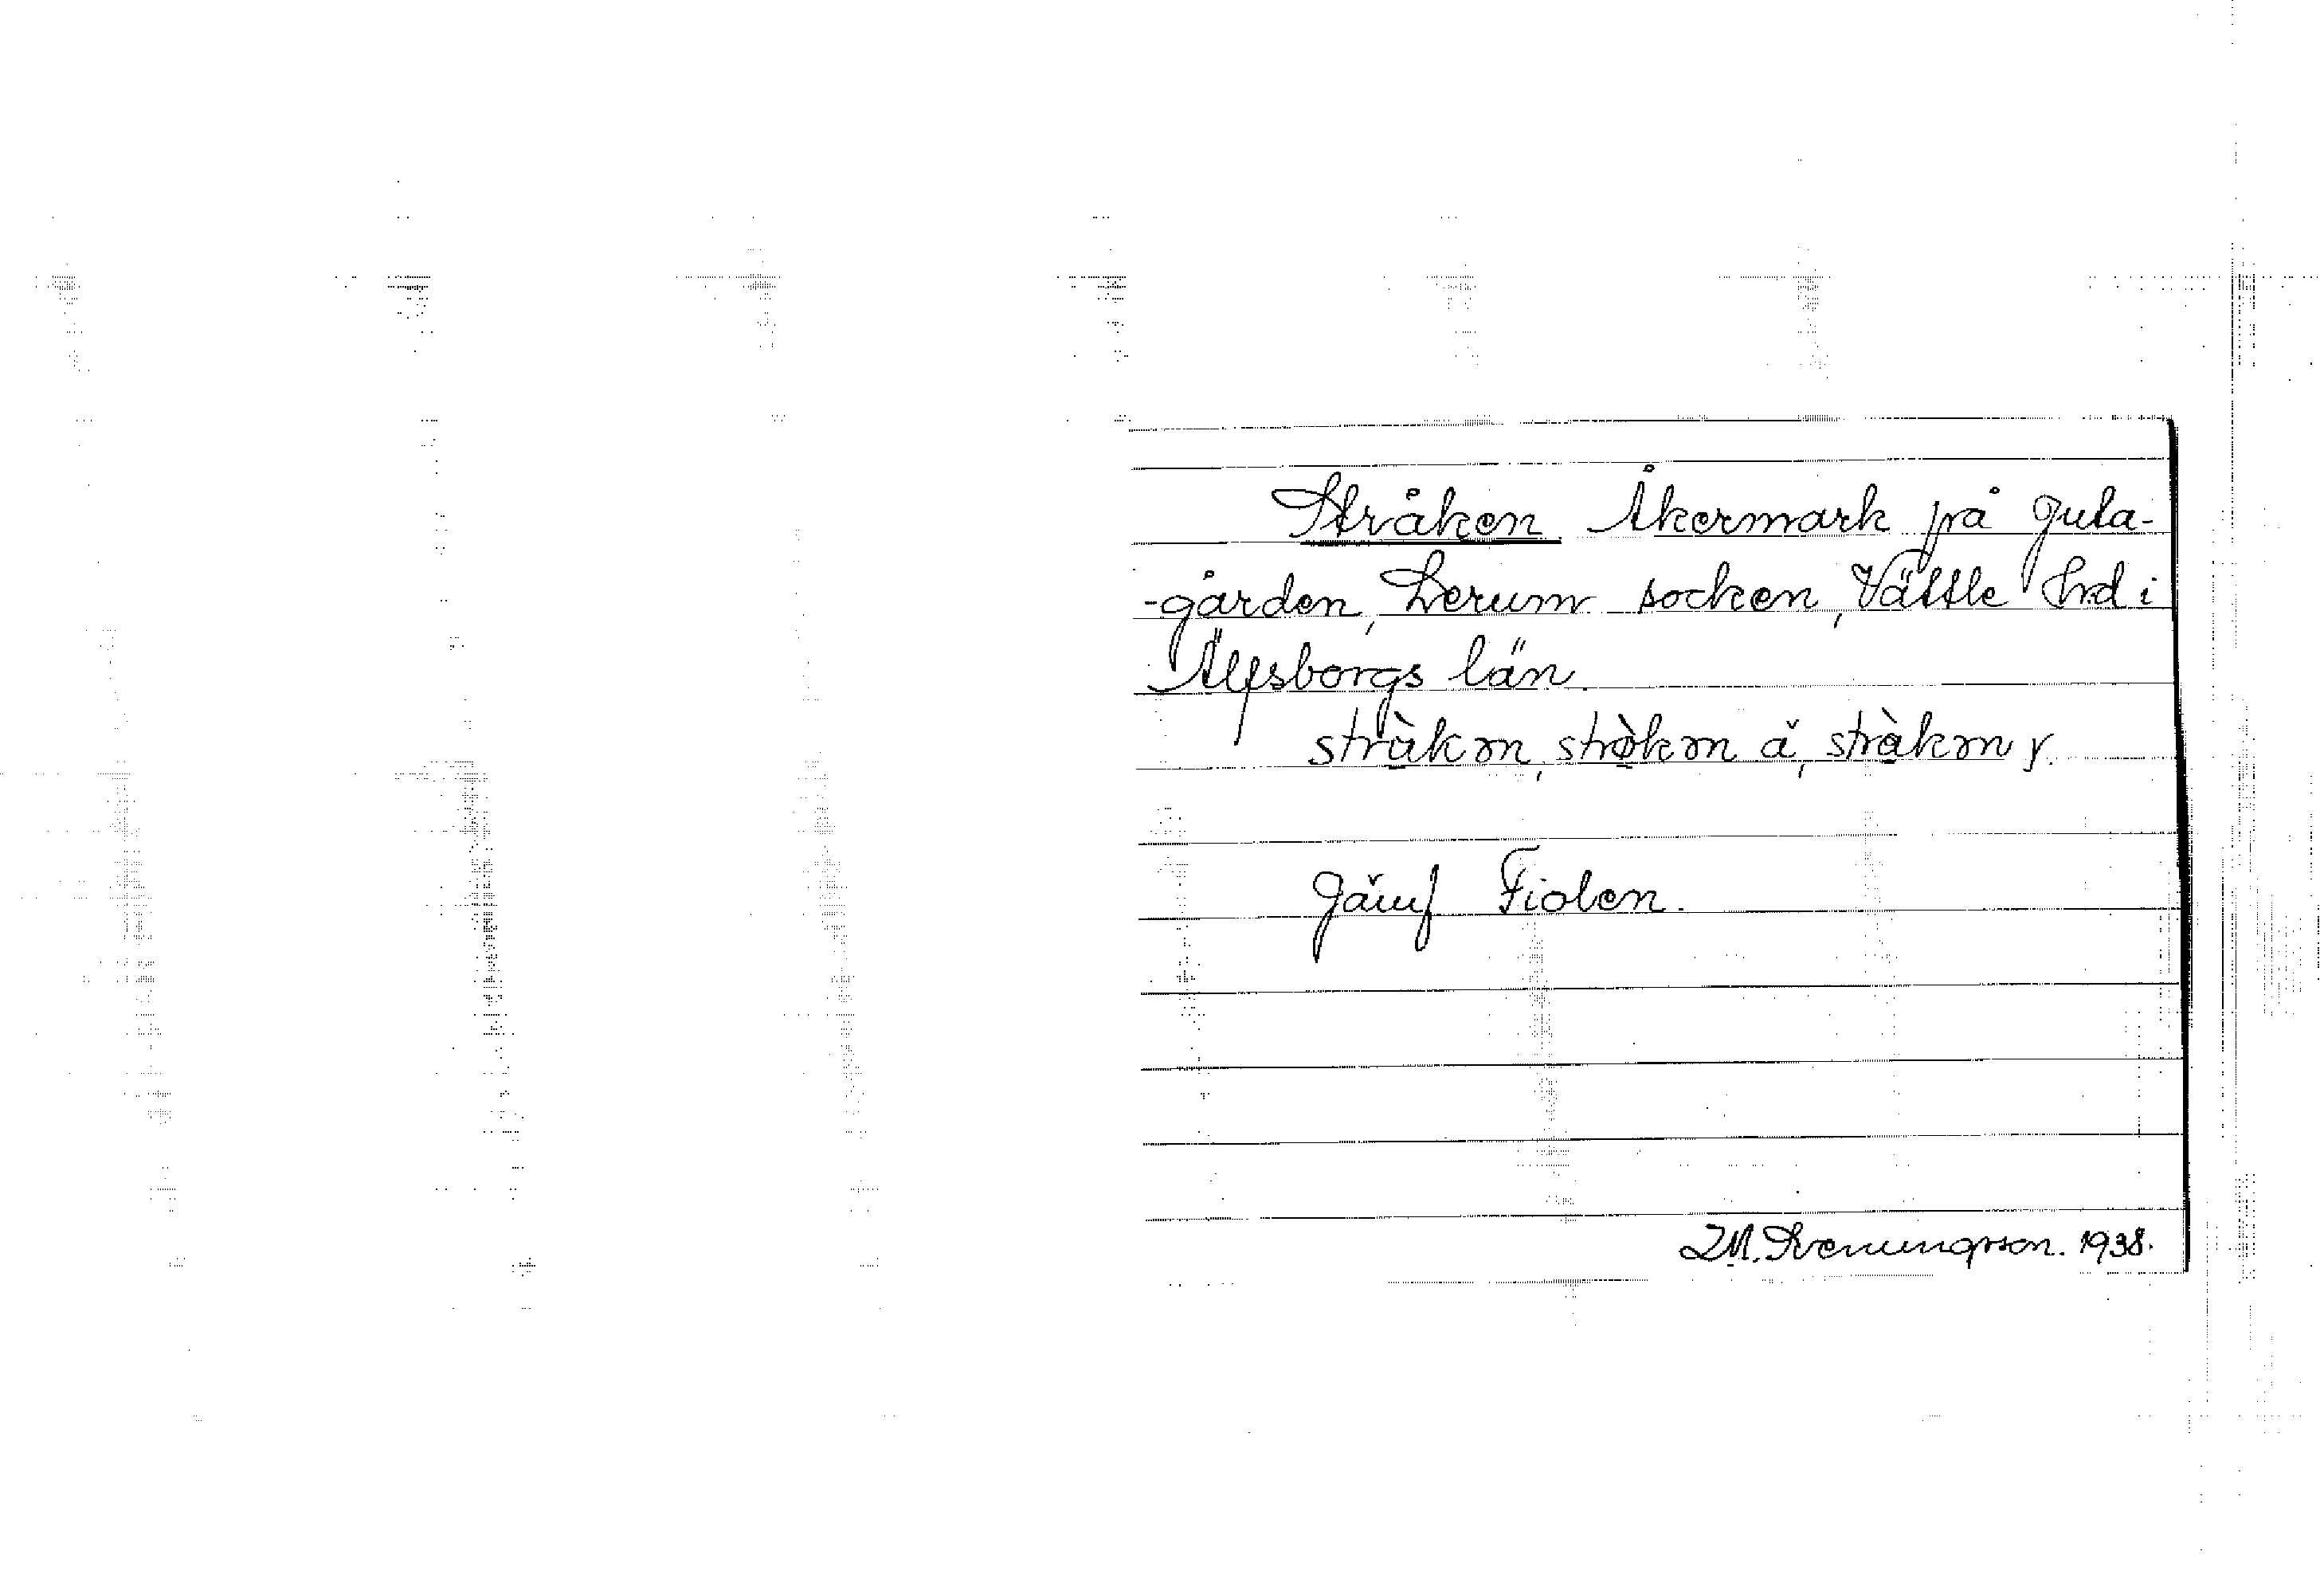 Stråken Åkermark på Gula-
-gården, Lerum socken, Vättle Hrd i
Älfsborgs län.
stràkm, stròkm ä, stràkm y.
Jämf Fiolen.
I.M. Svenungsson. 1938.